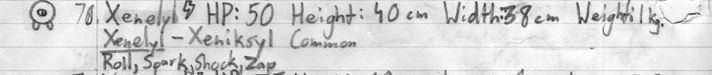 70. Xenelyl HP: 50 Height: 40 cm Width: 38 cm Weight: 1 kg.
Xenelyl - Xeniksyl Common
Roll, Spark, Shock, Zap